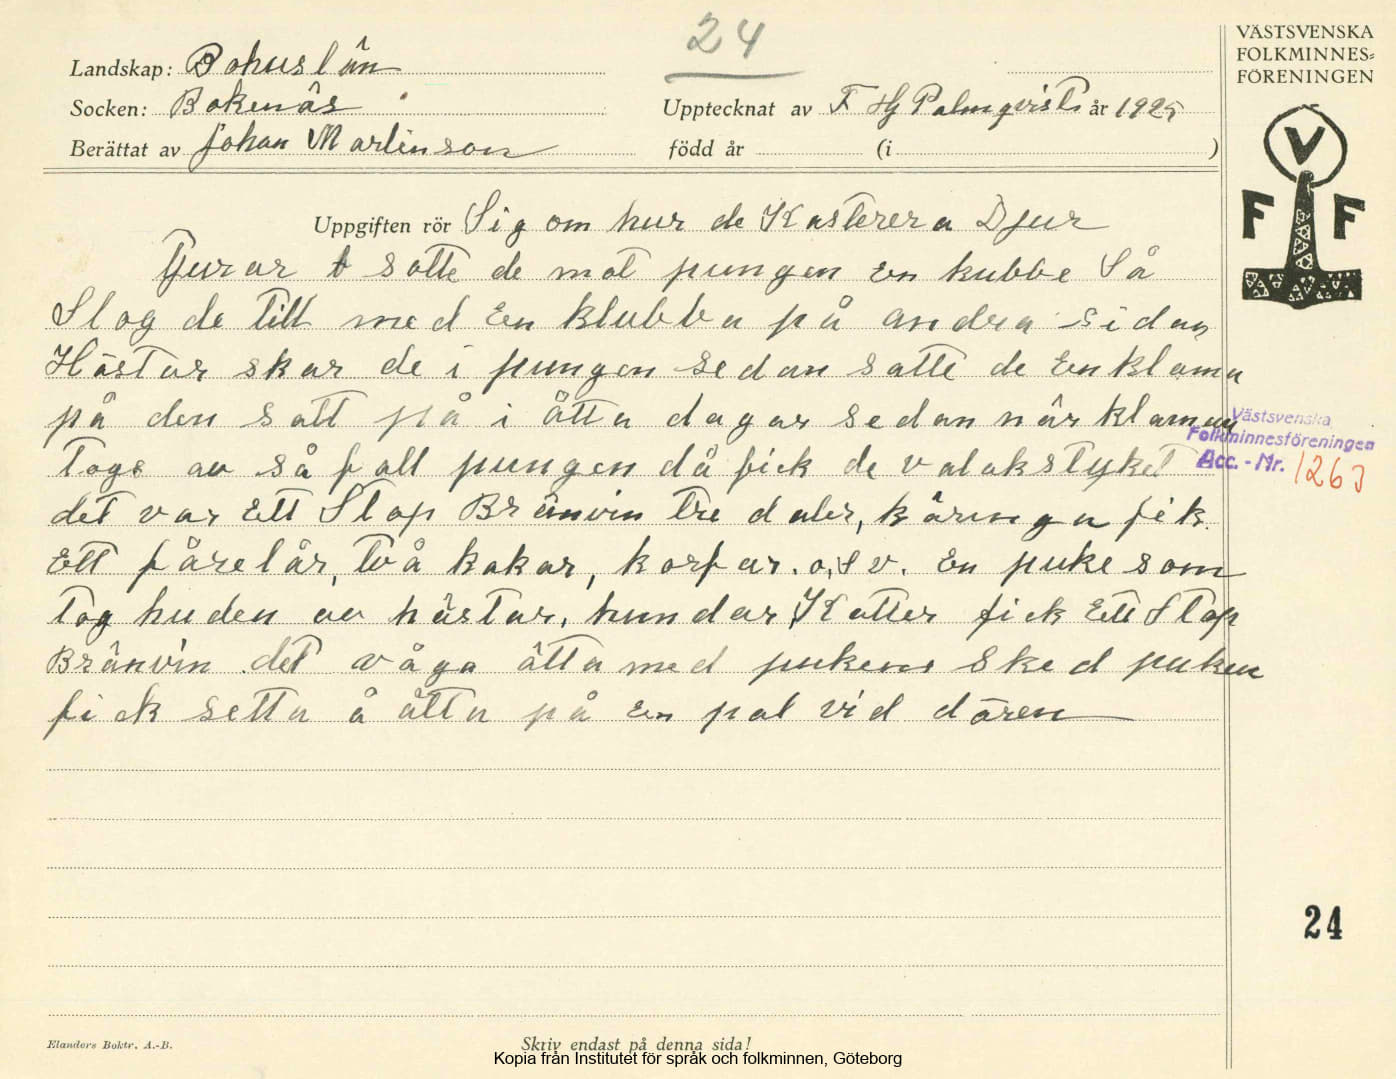 24
VÄSTSVENSKA
FOLKMINNES=
FÖRENINGEN
Landskap: Bohuslän
Socken: Bokenäs
Upptecknat av F Hj Palmqvist år 1925
Berättat av Johan Martinson
född år (i )
V
F F
Uppgiften rör Sig om hur de Kasterera Djur
Tjurar satte de mot pungen en kubbe Så
Slog de till med En klubba på andra sidan
Hästar skar de i pungen sedan satte de En klama
på den satt på i åtta dagar sedan när klaman
togs av så fall pungen då fick de valakstyket
det var Ett Stop Bränvin tre daler, käringa fik
Ett fårelår, två kakar, korfvar. o, s v. En puke som
tog huden av hästar, hundar, Katter fick Ett Stop
Bränvin det våga ätta med pukens Sked puken
fick setta å ätta på en pal vid dören
Västsvenska
Folkminnesföreningen
Acc.-Nr. 1263
24
Elanders Boktr. A.-B.
Skriv endast på denna sida!
Kopia från Institutet för språk och folkminnen, Göteborg